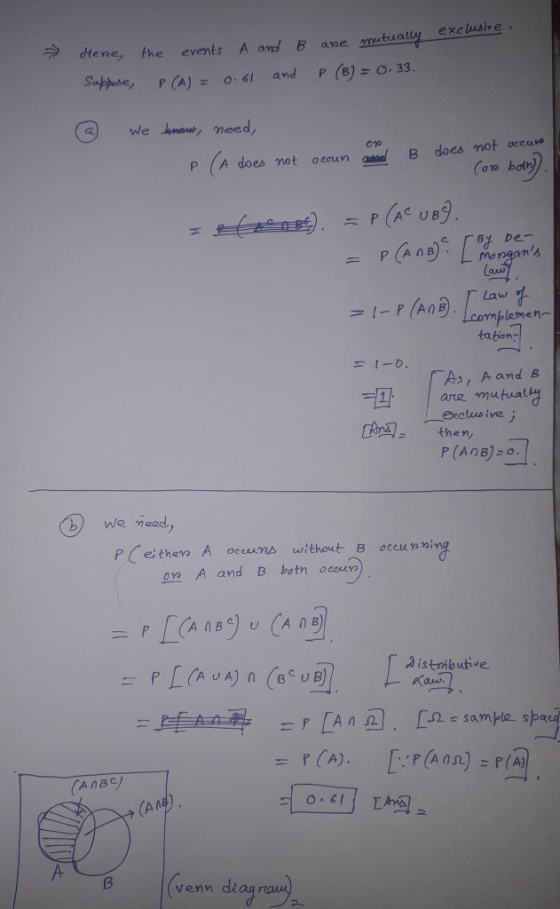 ⇒ Here, the events A and B are mutually exclusive.
Suppose, P(A) = 0.61 and P(B) = 0.33.
(a) We know, need,
P(A does not occur or B does not occur
(or both)).
= P(A^C ∩ B^C). = P(A^C ∪ B^C).
= P(A∩B)^C. [By De-
Morgan's
law].
= 1-P(A∩B). [Law of
complemen-
tation.].
= 1-0.
= 1. [As, A and B
are mutually
exclusive;
[Ans] = then,
P(A∩B)=0.]
(b) We need,
P(either A occurs without B occurring
or A and B both occur).
= P[(A∩B^C) ∪ (A∩B)].
= P[(A∪A) ∩ (B^C∪B)]. [Distributive
Law.].
= P[A∩ = P[A∩Ω]. [Ω = sample space]
= P(A). [∵P(A∩Ω) = P(A)].
= 0.61 [Ans] =
(A∩B^C)
(A∩B).
A
B
(venn diagram) =